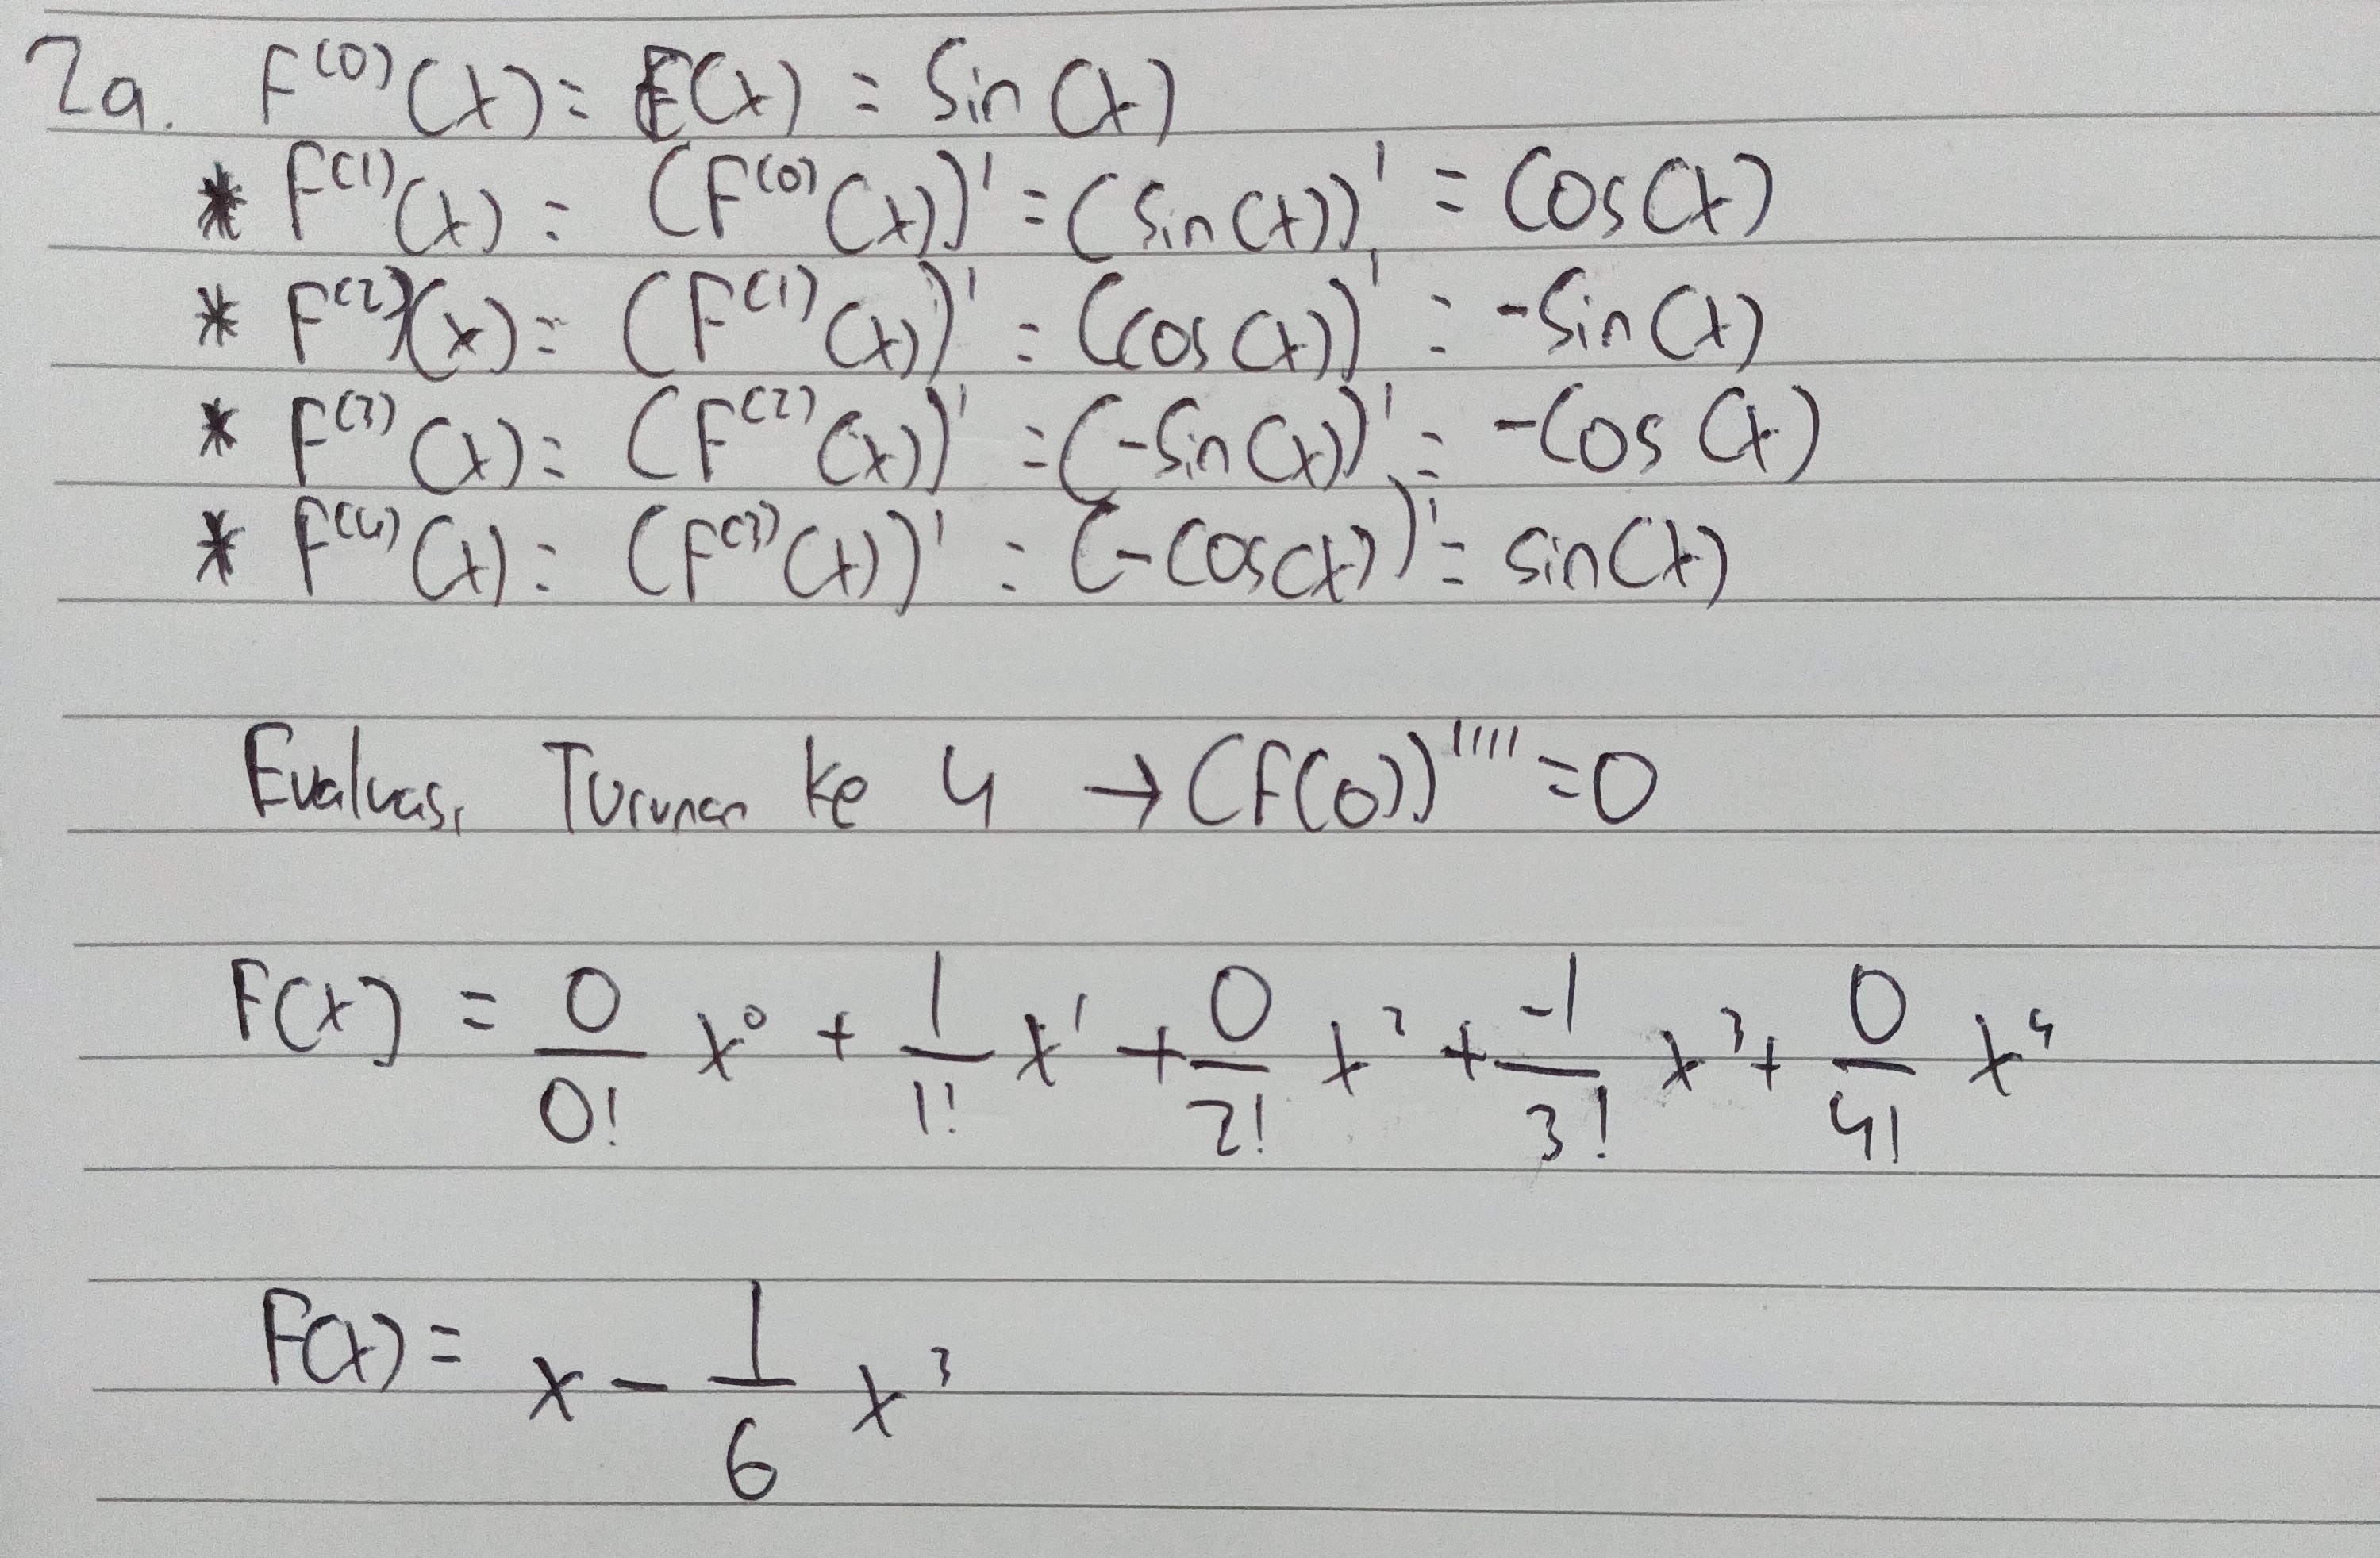 2a. F⁽⁰⁾(x) = F(x) = Sin(x)
* F⁽¹⁾(x) = (F⁽⁰⁾(x))' = (sin(x))' = Cos(x)
* F⁽²⁾(x) = (F⁽¹⁾(x))' = (cos(x))' = -Sin(x)
* F⁽³⁾(x) = (F⁽²⁾(x))' = (-Sin(x))' = -Cos(x)
* F⁽⁴⁾(x) = (F⁽³⁾(x))' = (-Cos(x))' = sin(x)
Evaluasi Turunan ke 4 → (F(0))'''' = 0
F(x) = 0/0! x⁰ + 1/1! x¹ + 0/2! x² + -1/3! x³ + 0/4! x⁴
F(x) = x - 1/6 x³